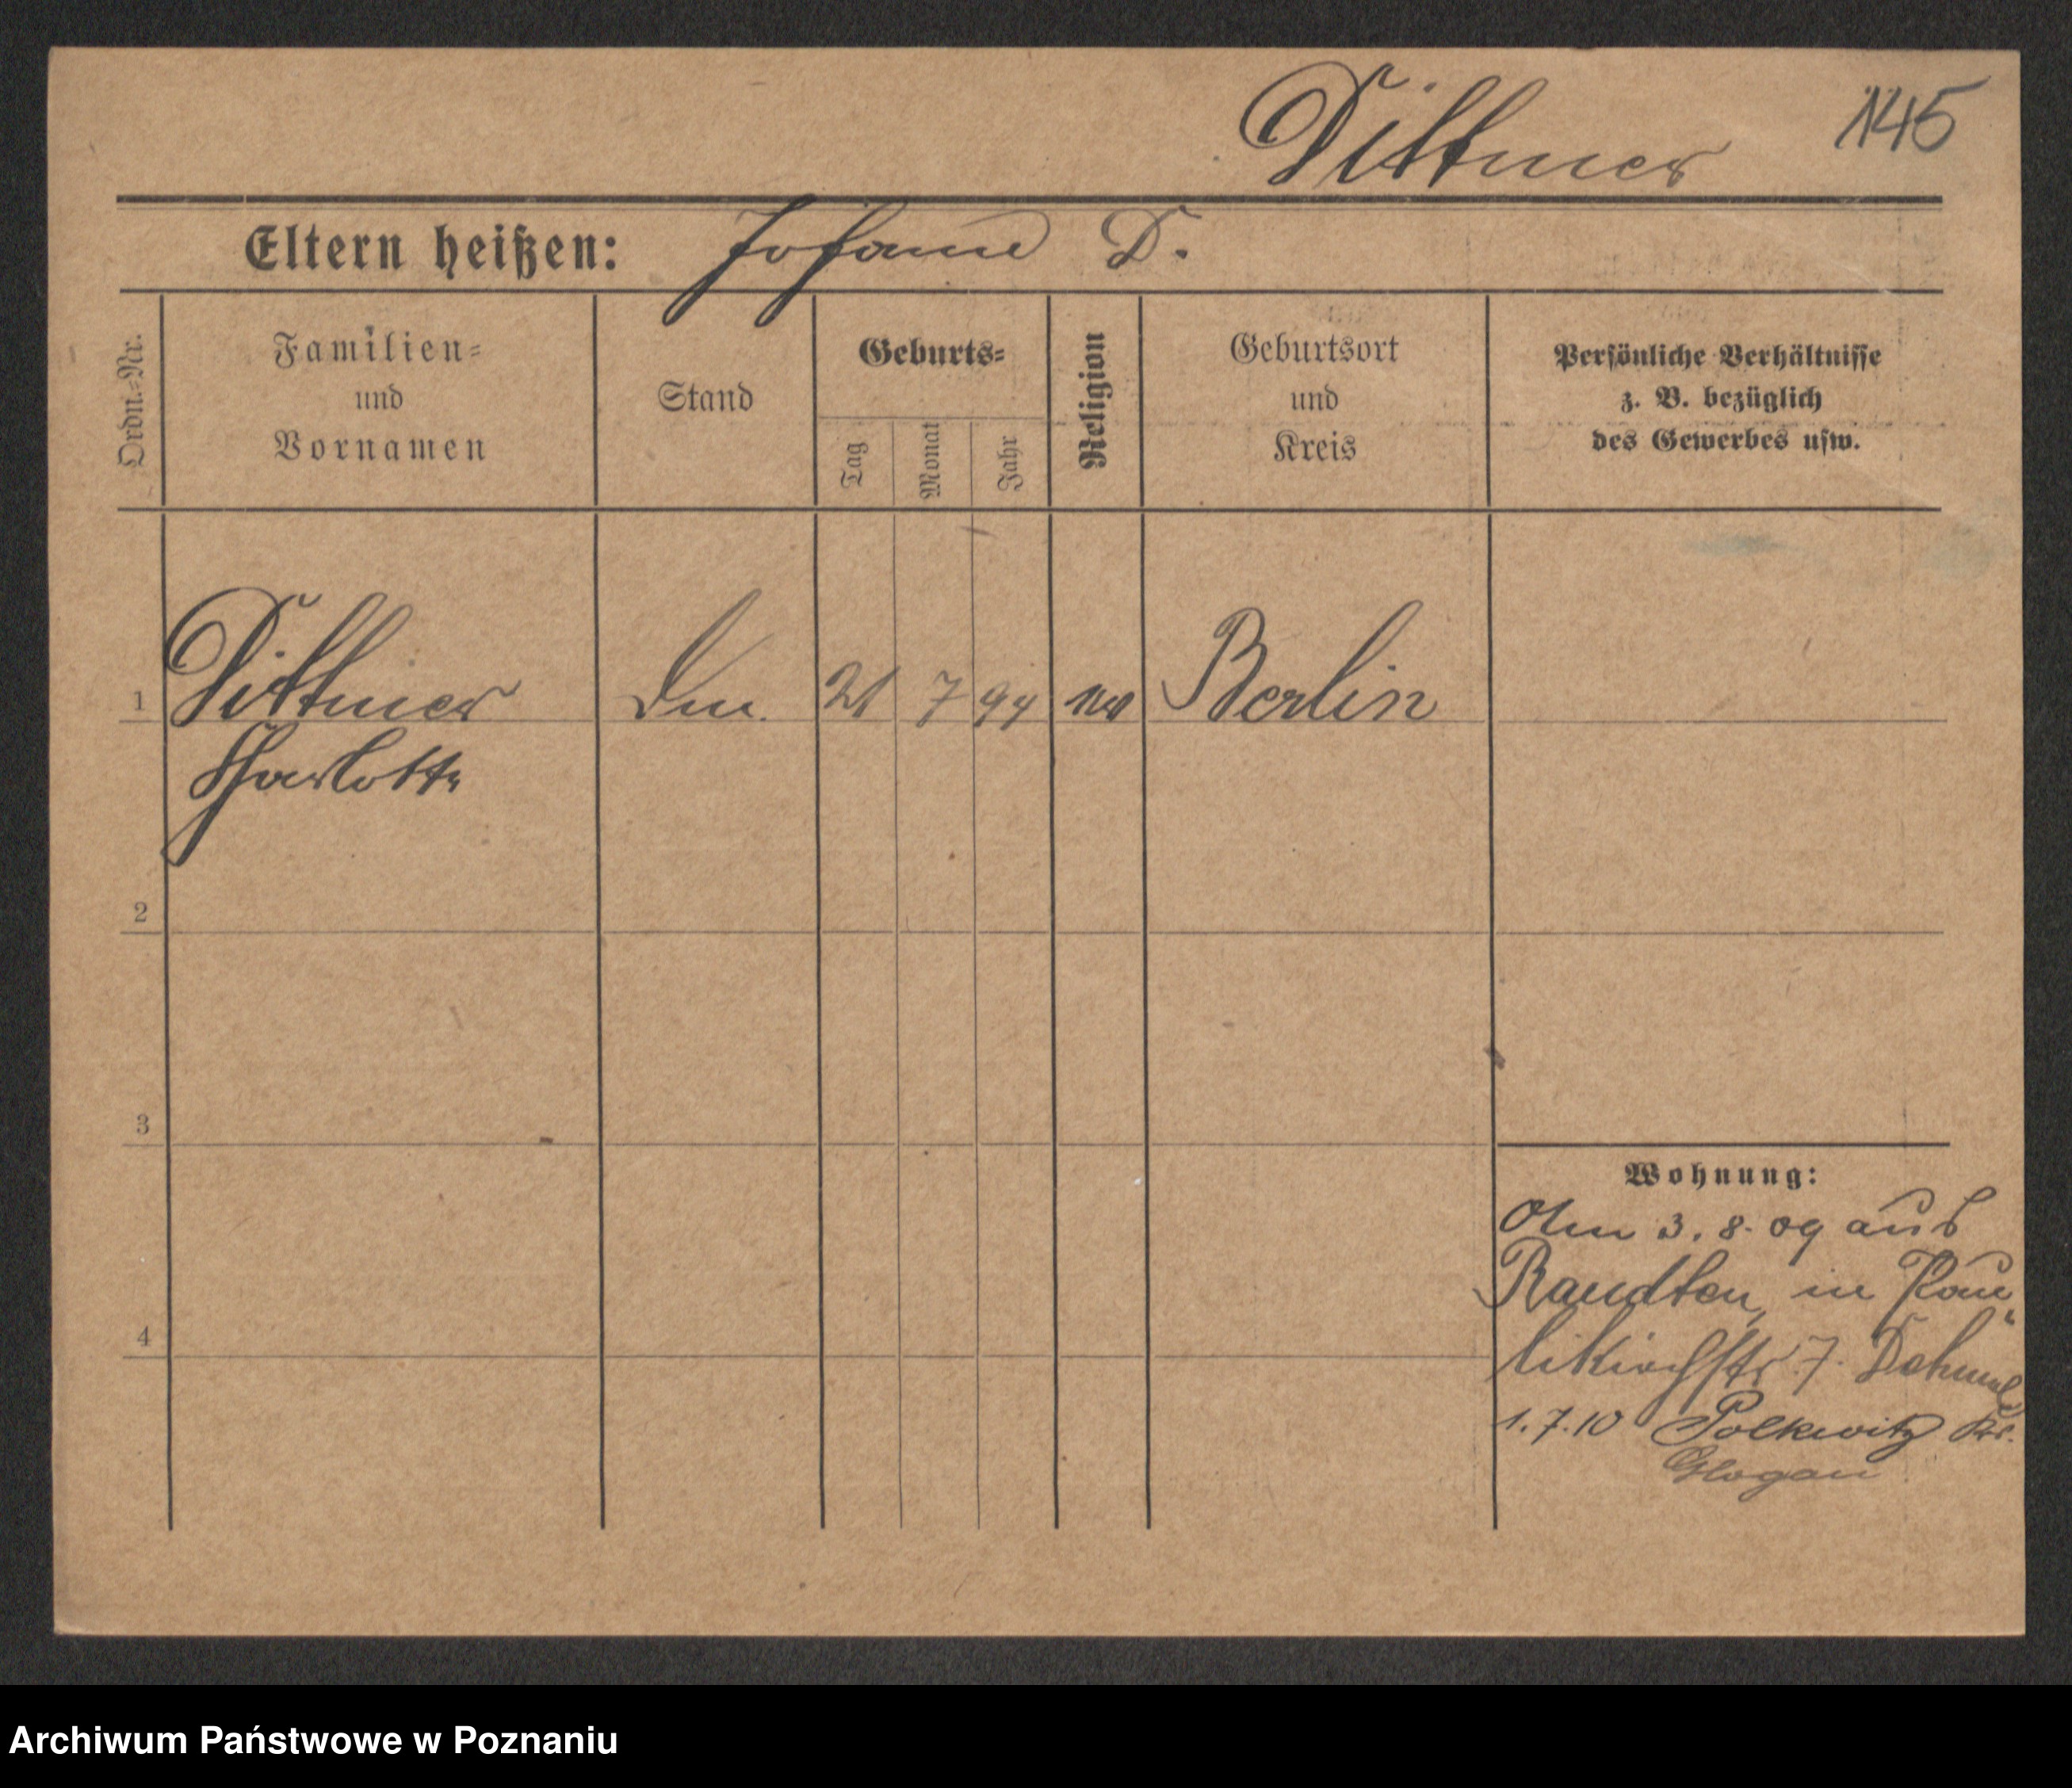 Dittmer 145
Eltern heißen: Johann D.
Ordn.-Nr.
Familien-
und
Vornamen
Stand
Geburts-
Tag
Monat
Jahr
Religion
Geburtsort
und
Kreis
Persönliche Verhältnisse
z. B. bezüglich
des Gewerbes usw.
1 Dittmer 21 7 94 Berlin
Charlotte
2
3
4
Wohnung:
3. 8. 09 aus
Raudten, in Pau
likirchstr 7.
1. 7. 10 Polkwitz Kr.
Glogau
Archiwum Państwowe w Poznaniu